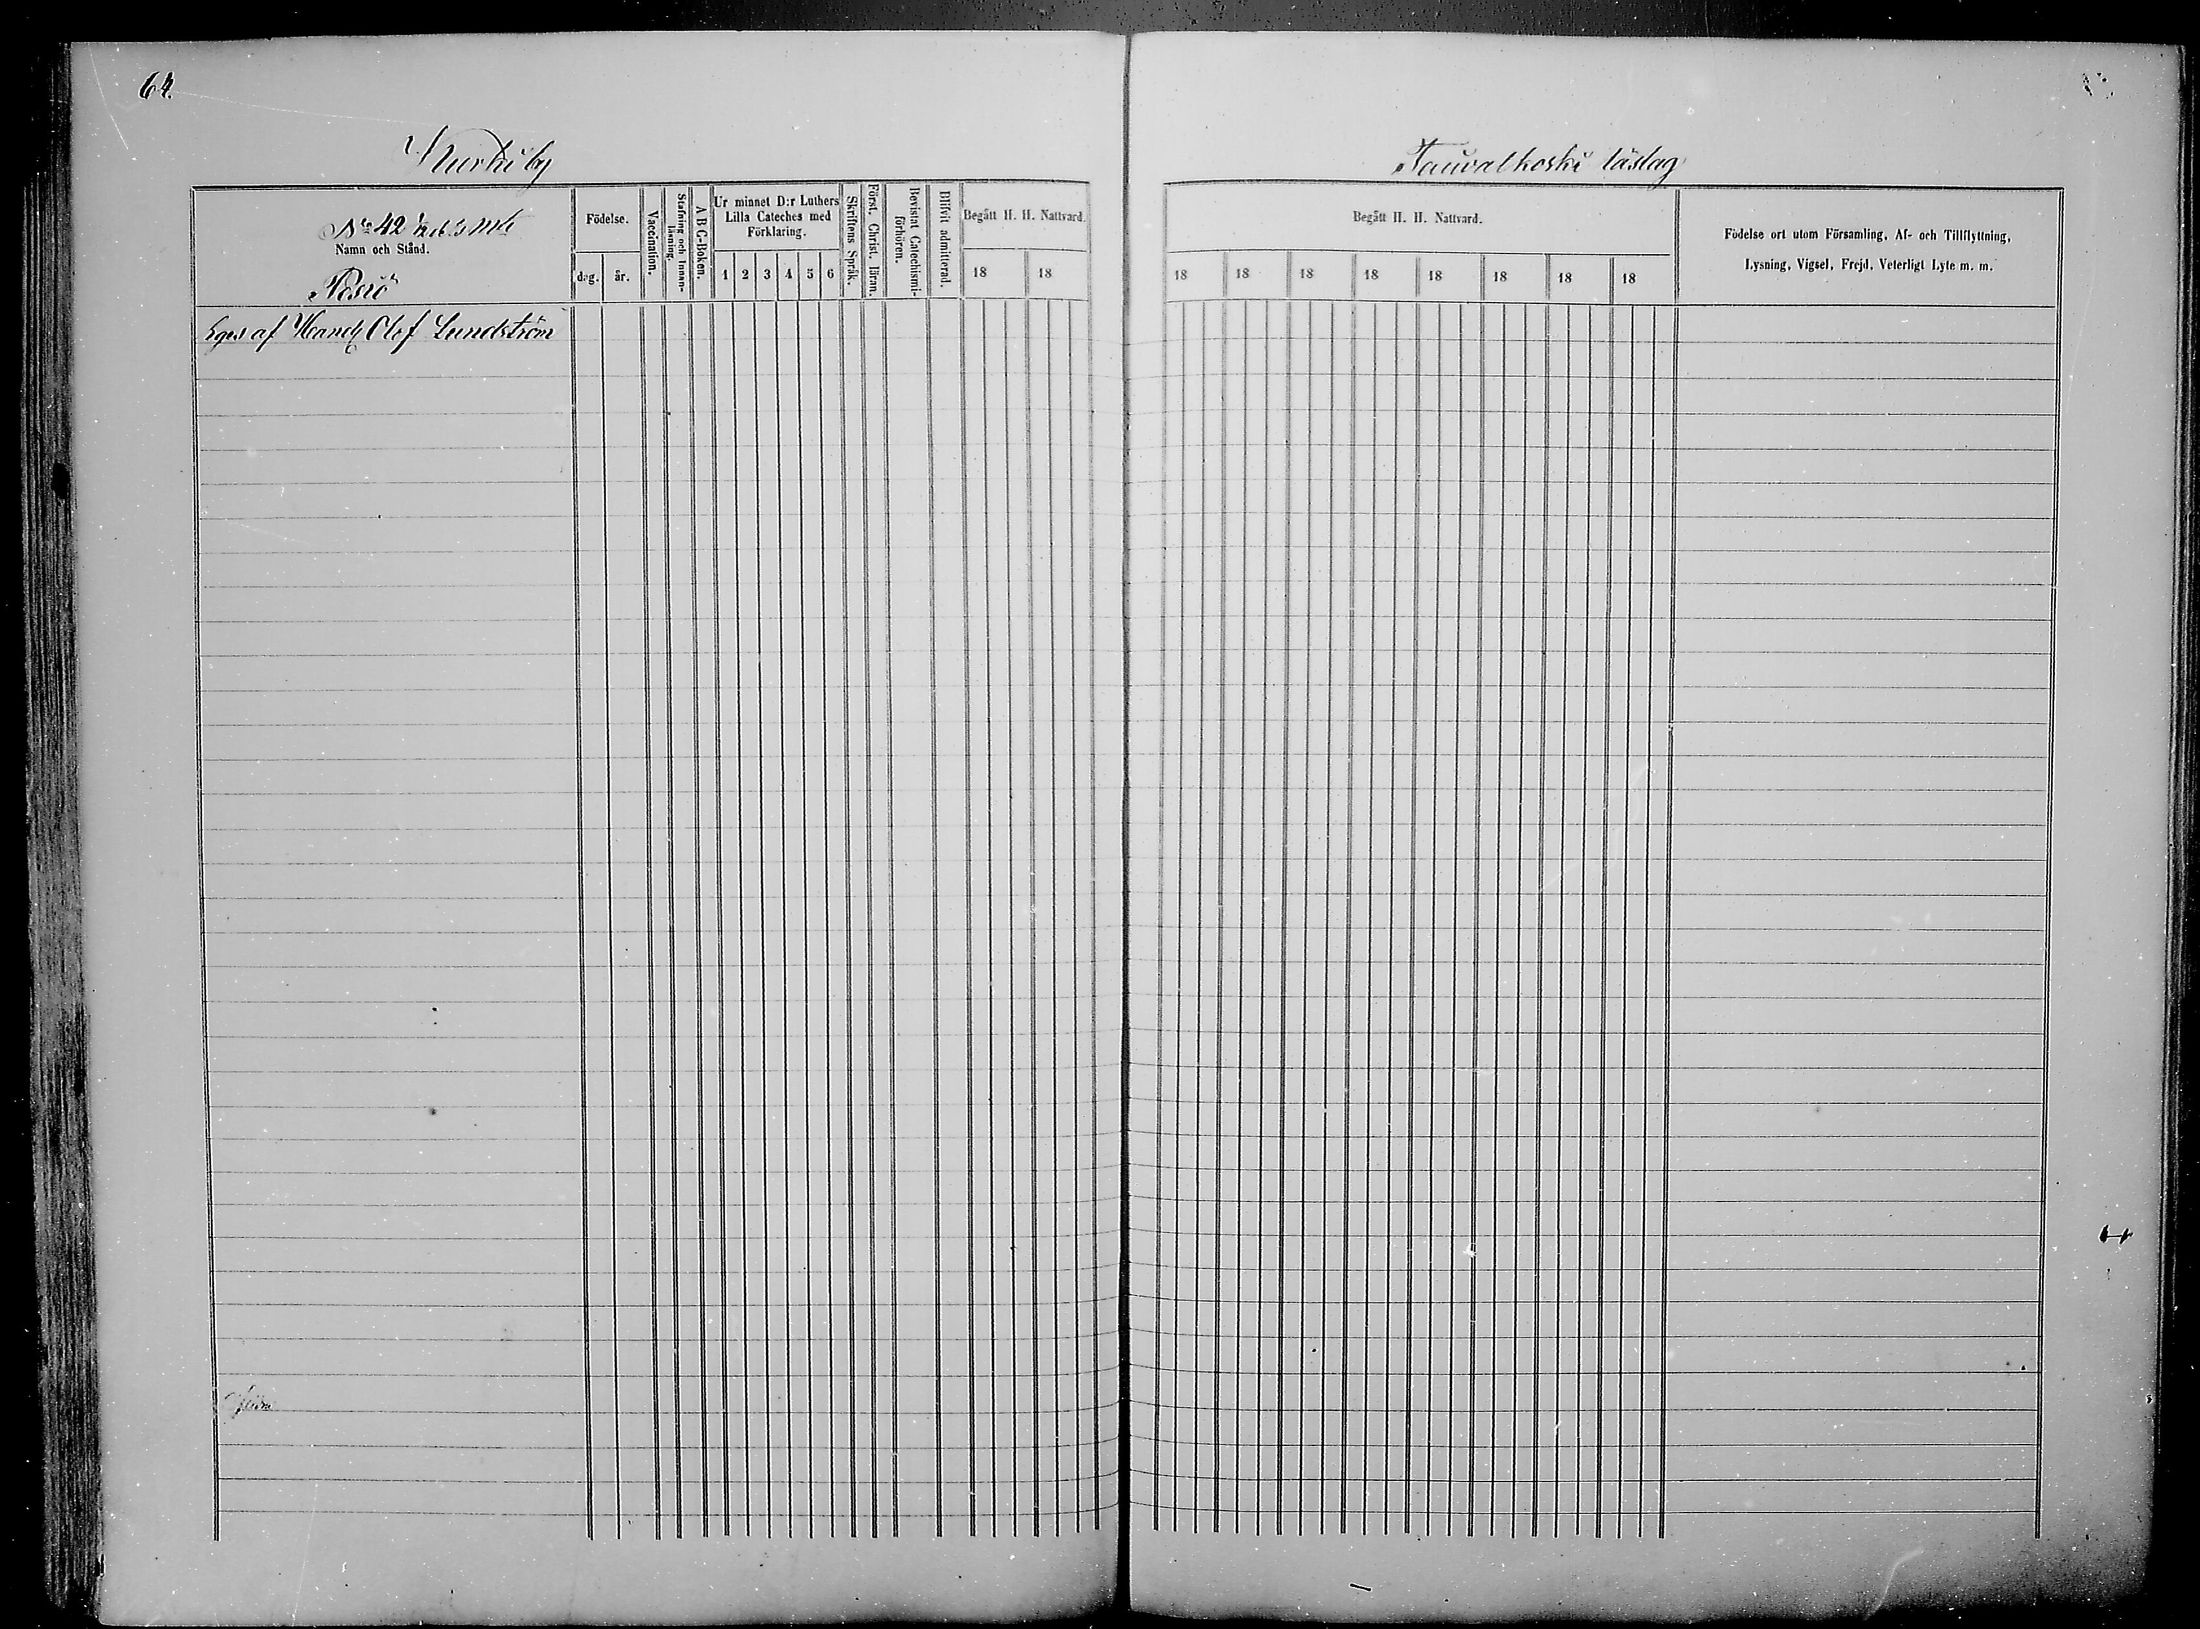 64.
Kurki by
Tauvalkoski läslag
No 42
Namn och Stånd.
Födelse.
dag. år.
Vaccination.
Stafning och Innan-
läsning.
A B C-Boken.
Ur minnet D:r Luthers
Lilla Cateches med
Förklaring.
1 2 3 4 5 6
Skriftens Språk.
Först. Christ. läran.
Bevistat Catechismi-
förhören.
Blifvit admitterad.
Begått H. H. Nattvard.
18 18
Begått H. H. Nattvard.
18 18 18 18 18 18 18 18
Födelse ort utom Församling, Af- och Tillflyttning,
Lysning, Vigsel, Frejd, Veterligt Lyte m. m.
Eges af Handl Olof Lundström